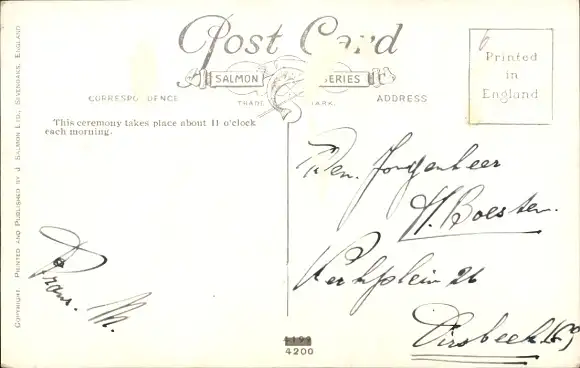 Post Card
SALMON SERIES
CORRESPONDENCE
TRADE MARK.
ADDRESS
Printed
in
England
This ceremony takes place about 11 o'clock
each morning.
COPYRIGHT. PRINTED AND PUBLISHED BY J. SALMON LTD., SEVENOAKS, ENGLAND
Frans. M.
Den. Jongenheer
H. Boesten.
Kerkplein 26
Dirsbeek
4199
4200